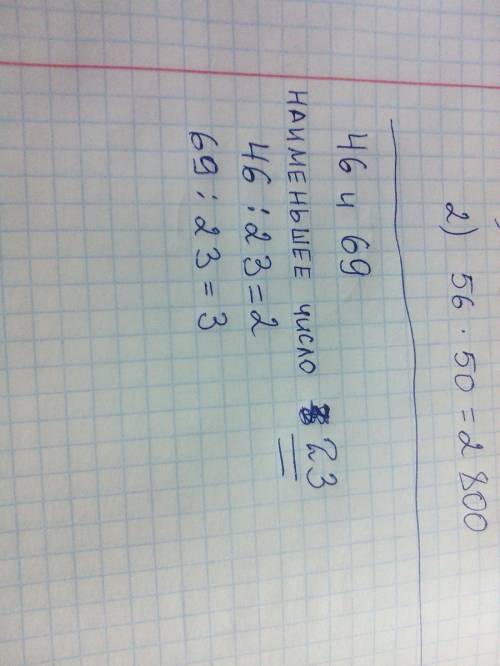 2) 56 · 50 = 2 800
46 и 69
НАИМЕНЬШЕЕ число 23
46 : 23 = 2
69 : 23 = 3